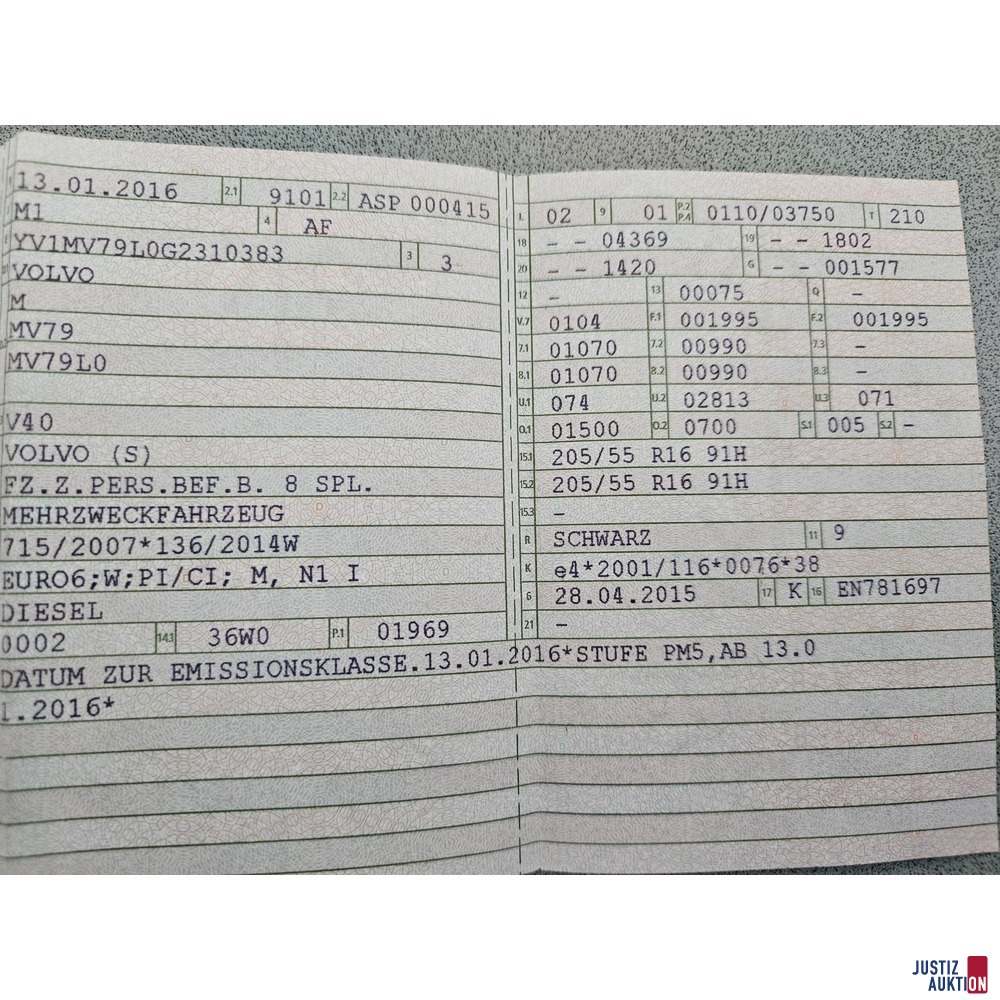 13.01.2016 2.1 9101 2.2 ASP 000415
M1 4 AF
YV1MV79L0G2310383 3 3
VOLVO
M
MV79
MV79L0
V40
VOLVO (S)
FZ.Z.PERS.BEF.B. 8 SPL.
MEHRZWECKFAHRZEUG
715/2007*136/2014W
EURO6;W;PI/CI; M, N1 I
DIESEL
0002 14.1 36W0 P.1 01969
L 02 9 01 P.2 P.4 0110/03750 T 210
18 – – 04369 19 – – 1802
20 – – 1420 G – – 001577
12 – 13 00075 Q –
V.7 0104 F.1 001995 F.2 001995
7.1 01070 7.2 00990 7.3 –
8.1 01070 8.2 00990 8.3 –
U.1 074 U.2 02813 U.3 071
O.1 01500 O.2 0700 S.1 005 S.2 –
15.1 205/55 R16 91H
15.2 205/55 R16 91H
15.3 –
R SCHWARZ 11 9
K e4*2001/116*0076*38
6 28.04.2015 17 K 16 EN781697
21 –
DATUM ZUR EMISSIONSKLASSE.13.01.2016*STUFE PM5,AB 13.0
1.2016*
JUSTIZ
AUKTION